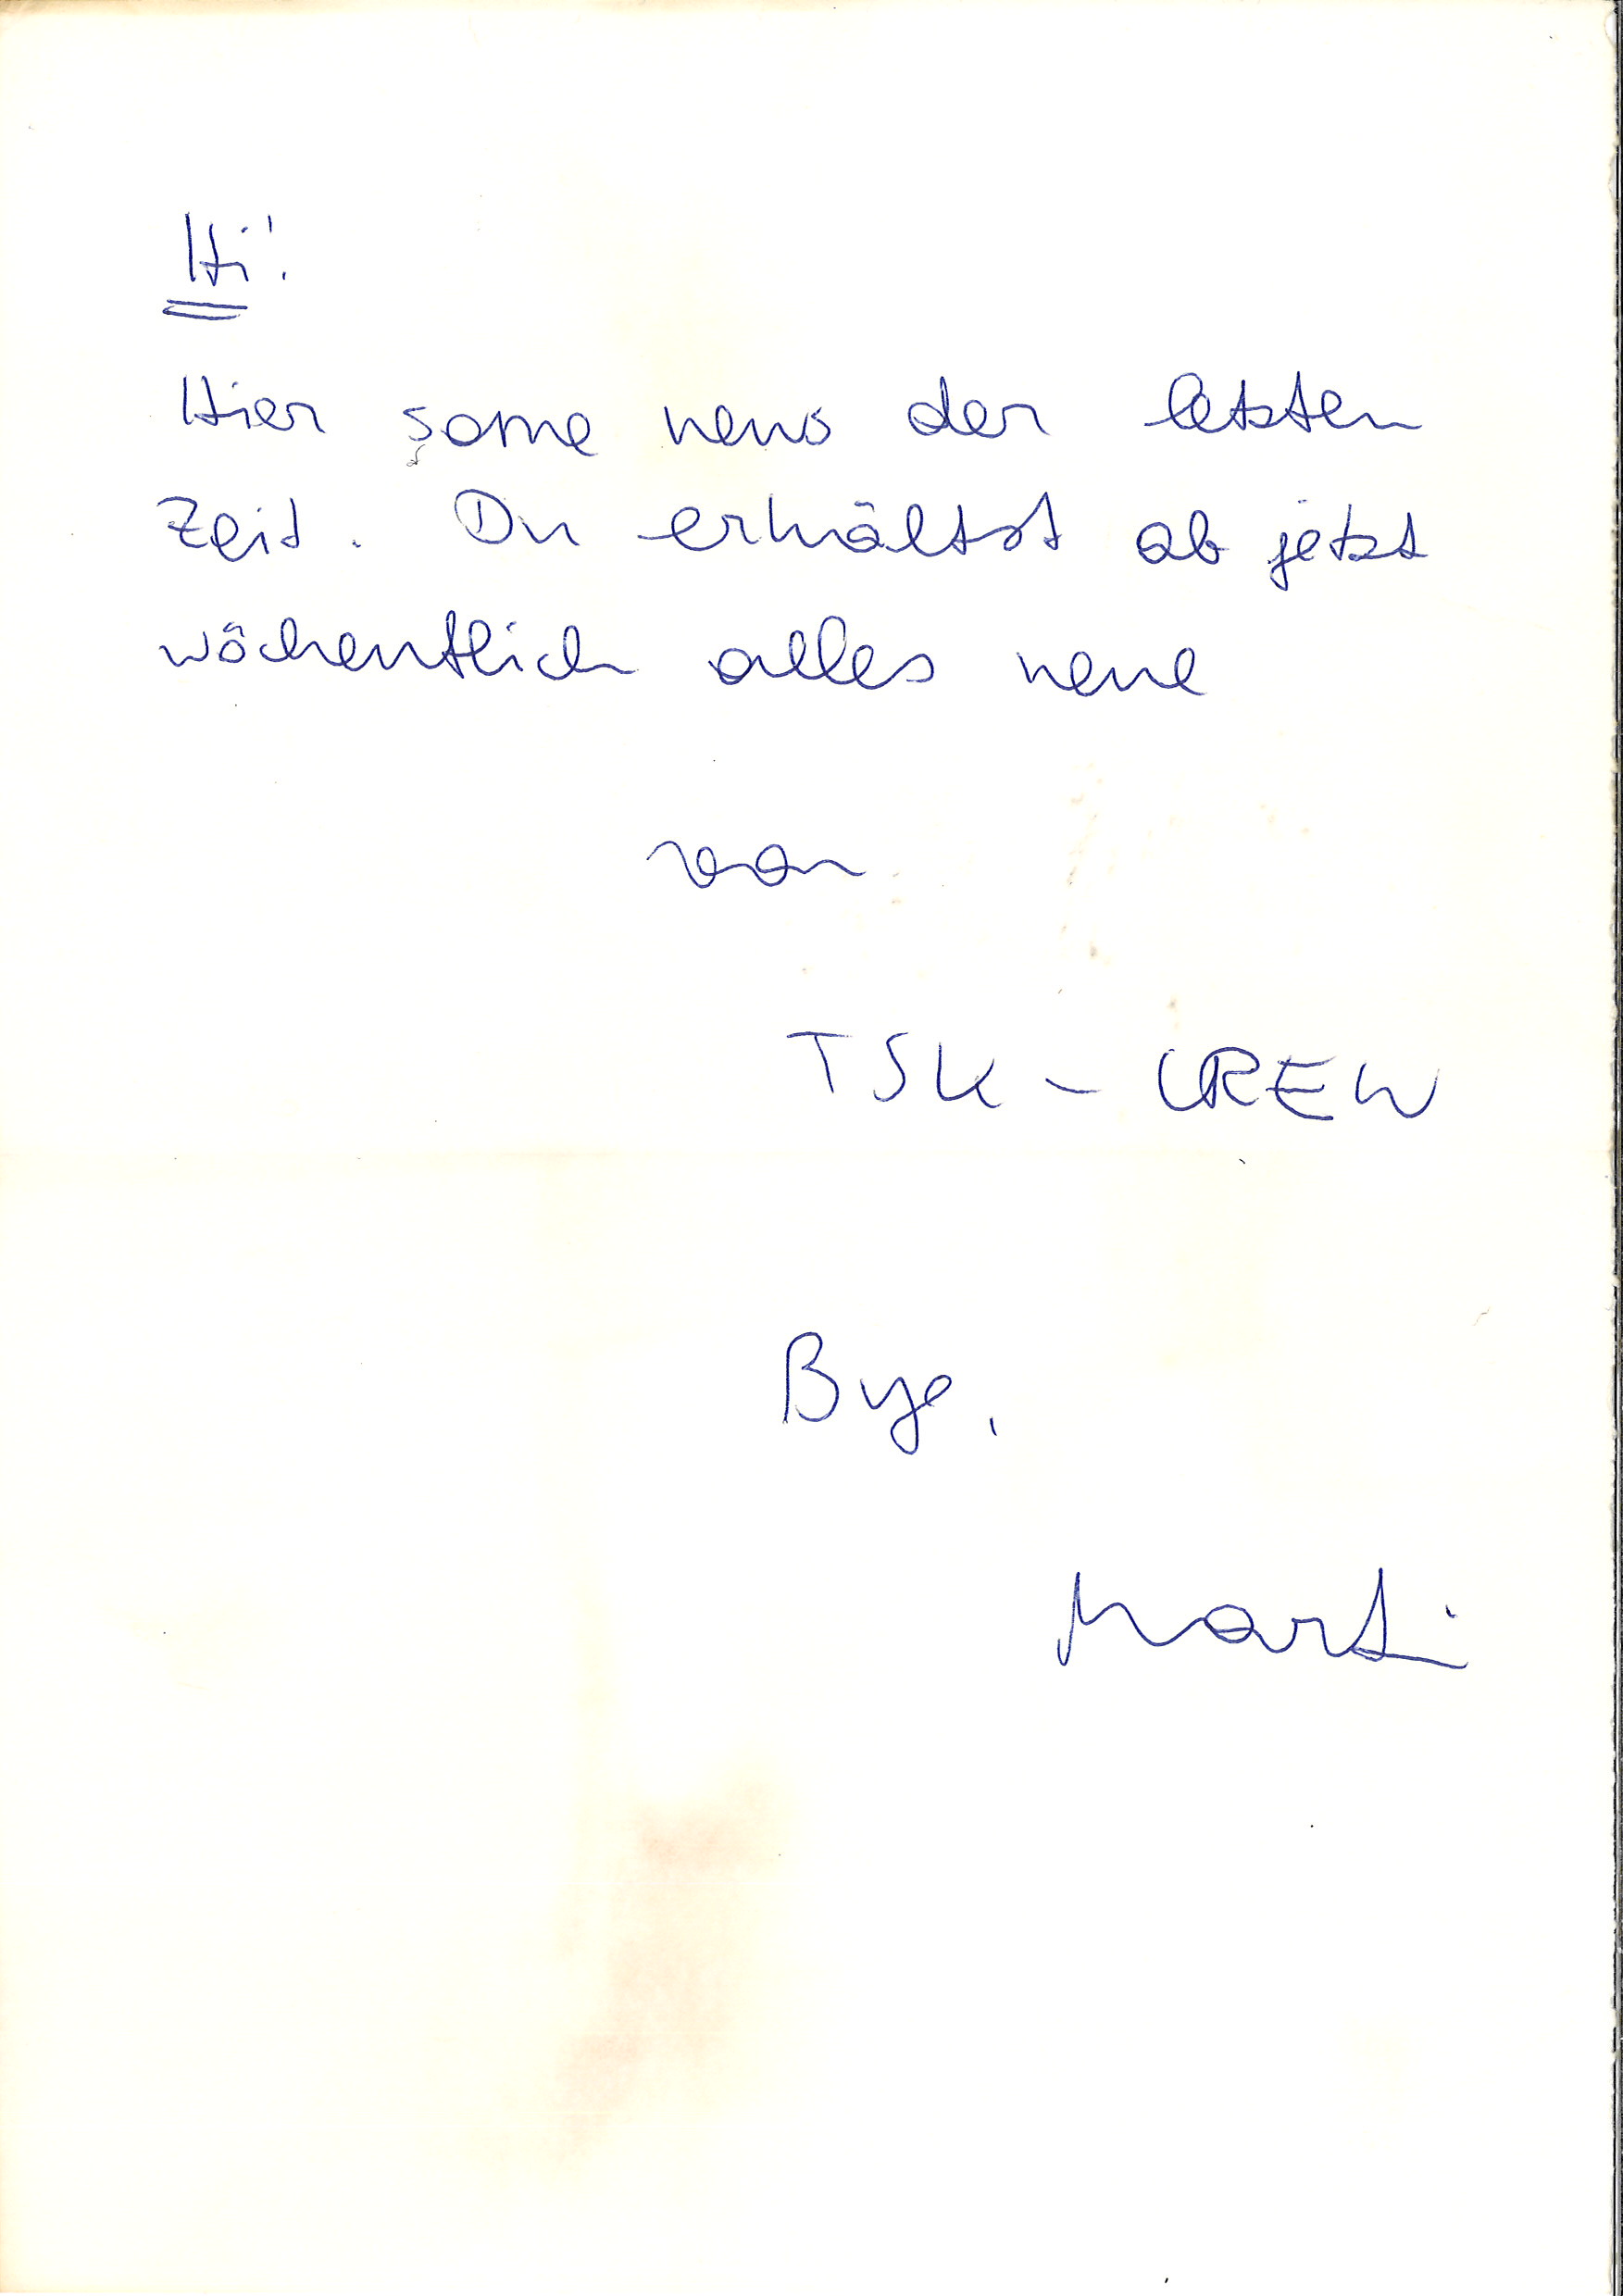 Hi!
Hier some news der letzten
Zeit. Du erhältst ab jetzt
wöchentlich alles neue
von
TSK - CREW
Bye,
Marti